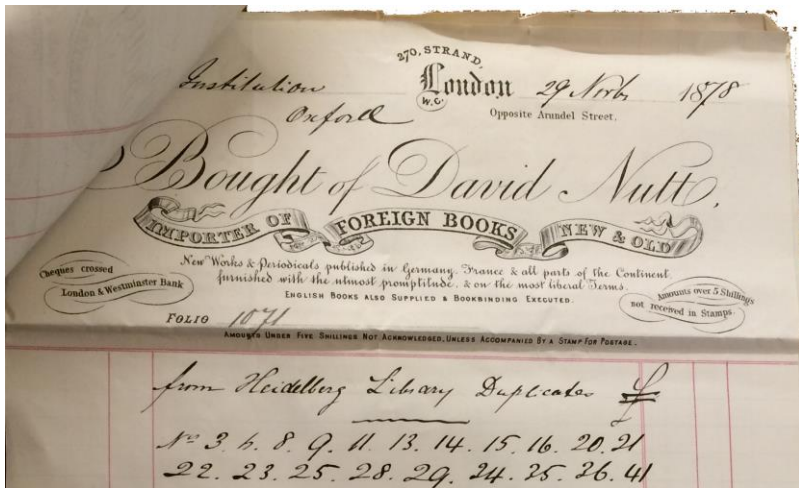 270, STRAND,
London
W.C.
29 Novbr 1878
Institution
Oxford
Opposite Arundel Street.
Bought of David Nutt,
IMPORTER OF FOREIGN BOOKS NEW & OLD
New Works & Periodicals published in Germany, France & all parts of the Continent
furnished with the utmost promptitude, & on the most liberal Terms.
ENGLISH BOOKS ALSO SUPPLIED & BOOKBINDING EXECUTED.
Cheques crossed
London & Westminster Bank
Amounts over 5 Shillings
not received in Stamps.
FOLIO 1071
AMOUNTS UNDER FIVE SHILLINGS NOT ACKNOWLEDGED, UNLESS ACCOMPANIED BY A STAMP FOR POSTAGE.
from Heidelberg Library Duplicates £
Nos 3. 8. 9. 11. 13. 14. 15. 16. 20. 21
22. 23. 25. 28. 29. 34. 35. 36. 41